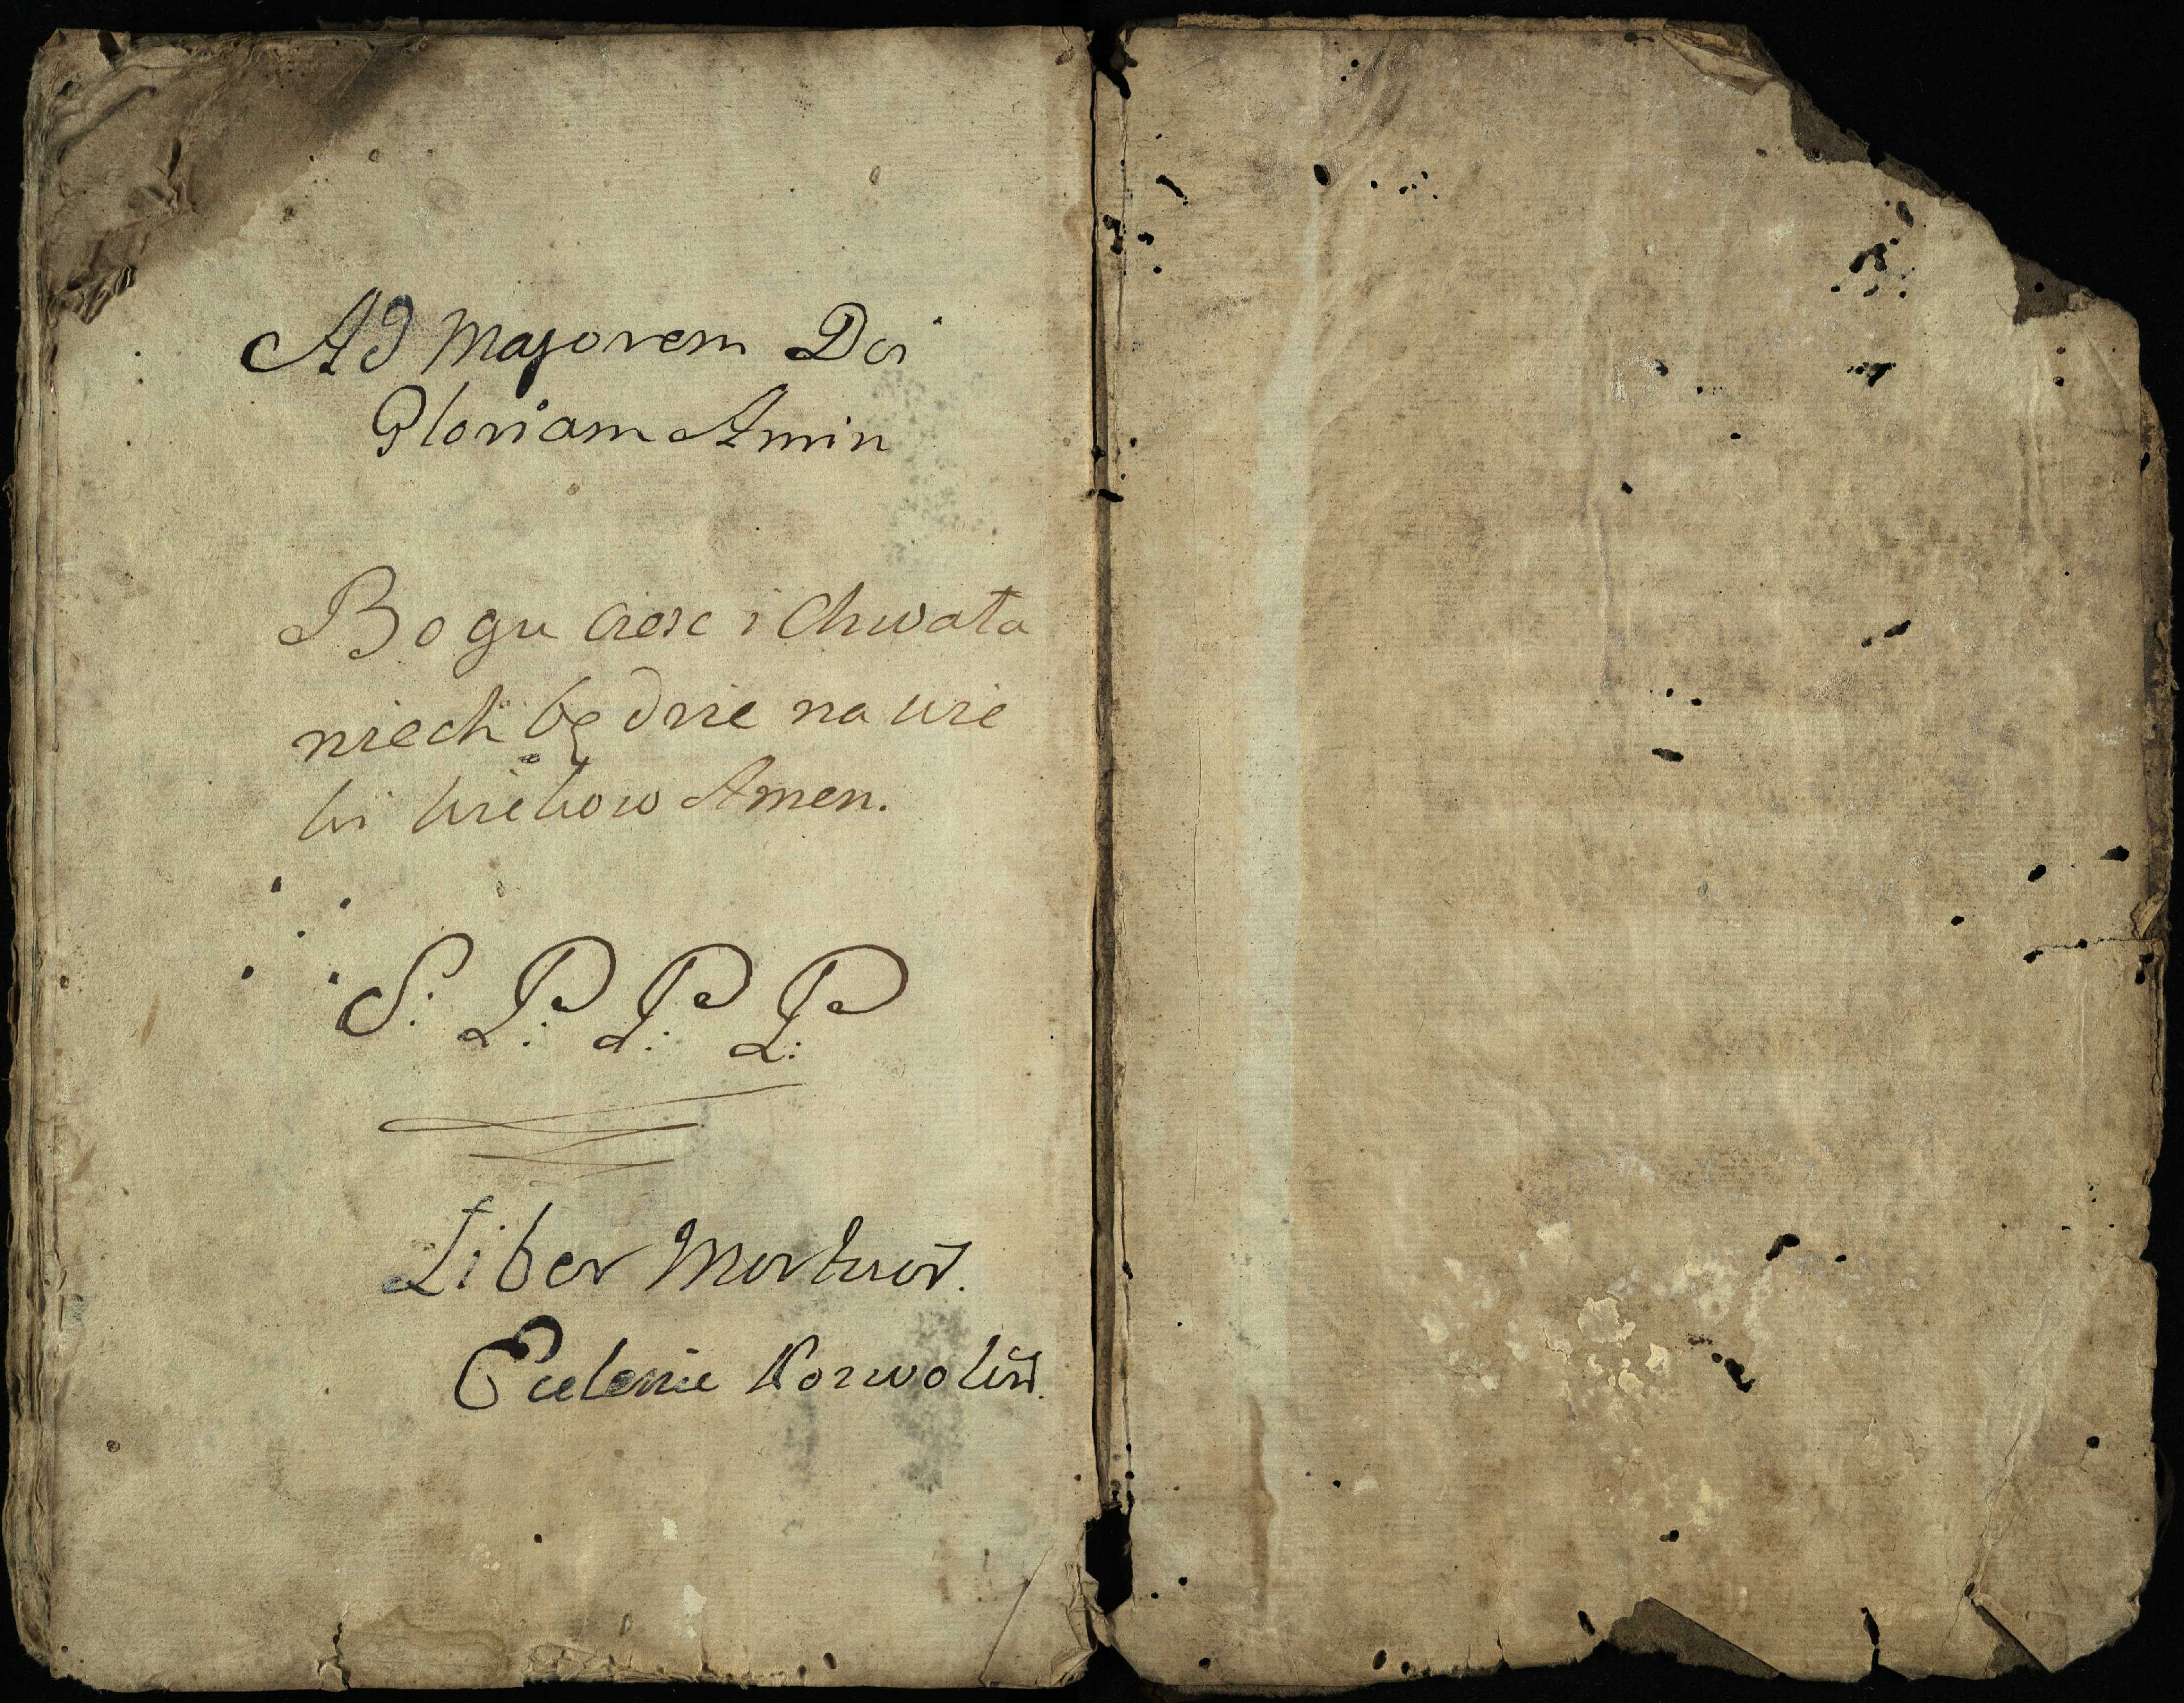 Ad Majorem Dei
Gloriam Amin
Bogu czesc i Chwała
niech będzie na wie
ki wiekow Amen.
S. P: P: P:
Liber Mortuor.
Eccleniæ